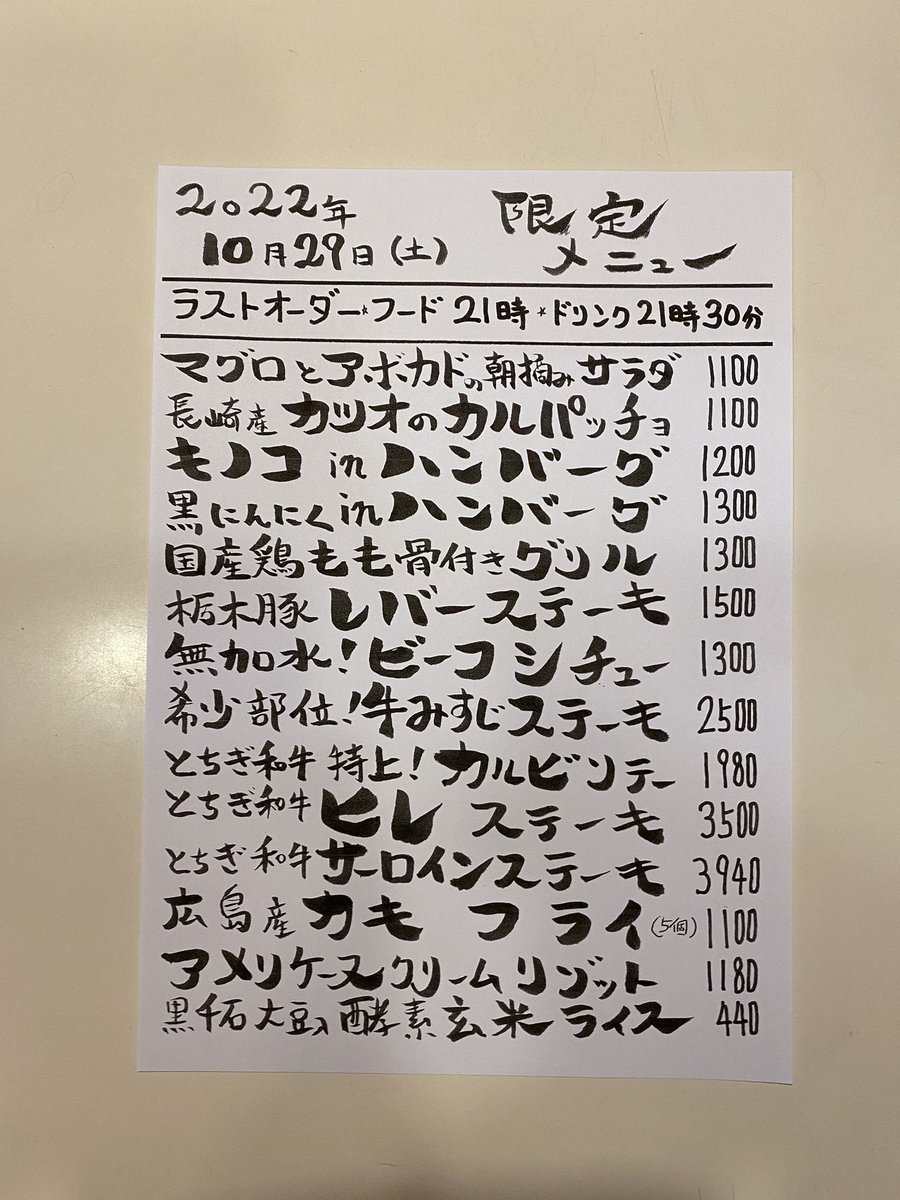 2022年
10月29日(土)
限定
メニュー
ラストオーダー*フード 21時 *ドリンク21時30分
マグロとアボカドの朝摘みサラダ 1100
長崎産 カツオのカルパッチョ 1100
キノコinハンバーグ 1200
黒にんにくinハンバーグ 1300
国産鶏もも骨付きグリル 1300
栃木豚レバーステーキ 1500
無加水!ビーフシチュー 1300
希少部位!牛みすじステーキ 2500
とちぎ和牛 特上!カルビソテー 1980
とちぎ和牛 ヒレステーキ 3500
とちぎ和牛 サーロインステーキ 3940
広島産 カキフライ(5個) 1100
アメリケーヌクリームリゾット 1180
黒千石大豆入酵素玄米ライス 440